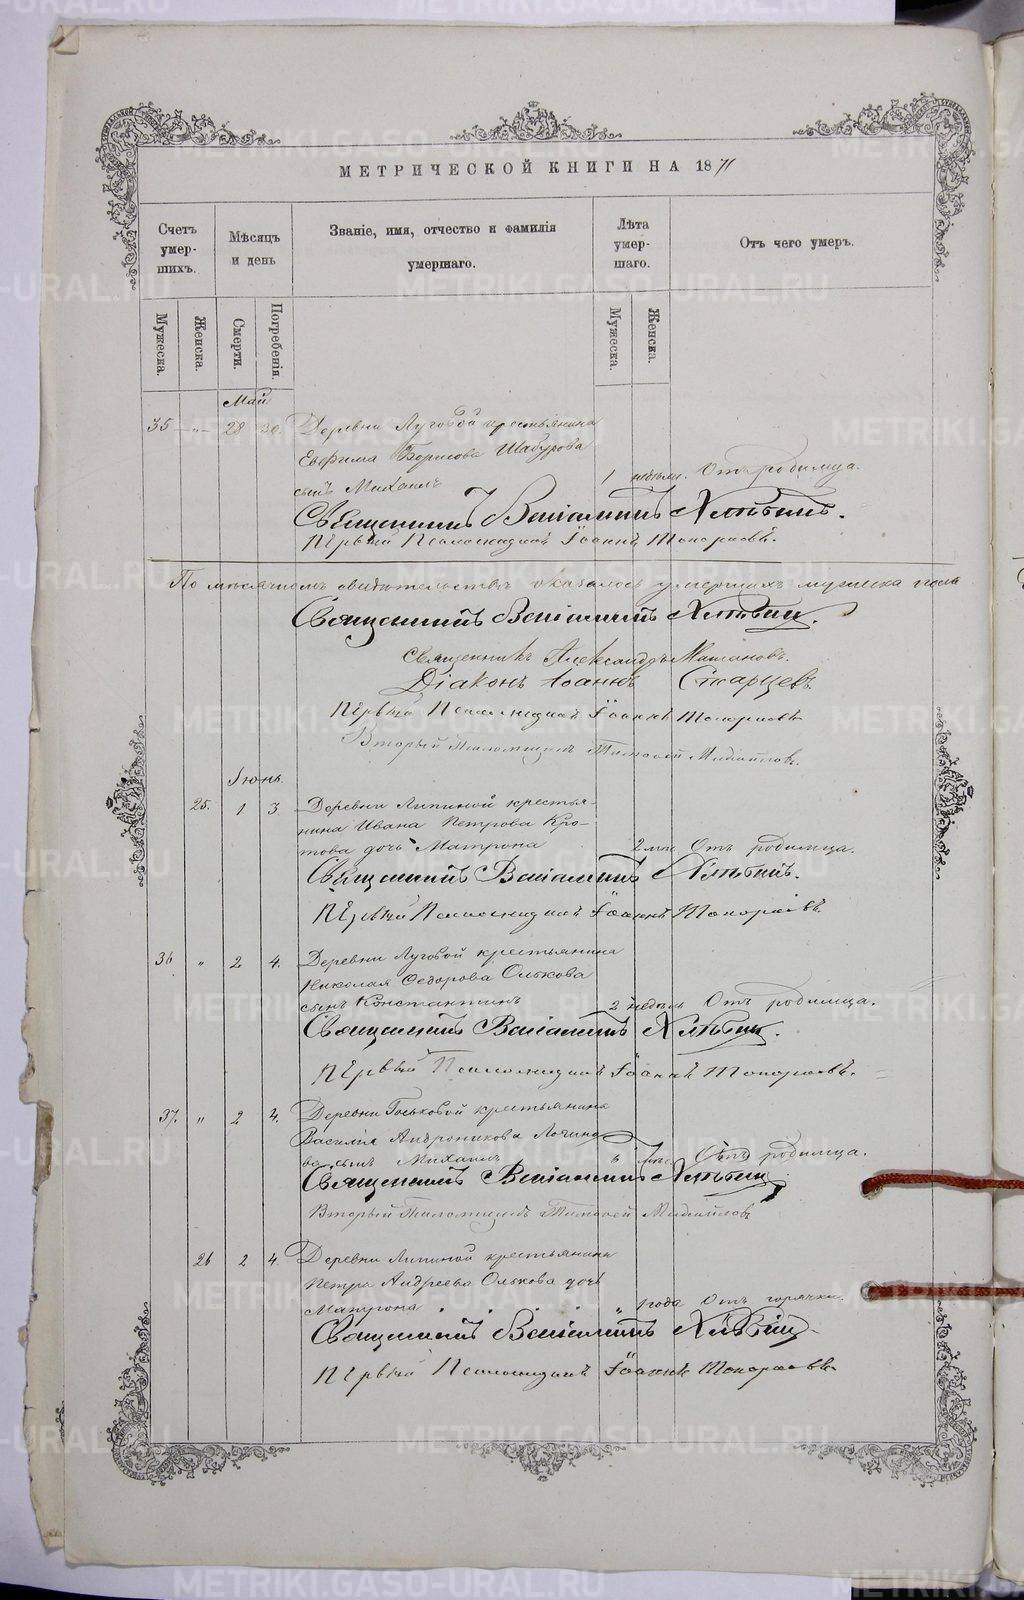 МЕТРИЧЕСКОЙ КНИГИ НА 1871
Счетъ умер-шихъ.
Мѣсяцъ и день
Званіе, имя, отчество и фамилія умершаго.
Лѣта умер-шаго.
Отъ чего умеръ.
Мужеска.
Женска.
Смерти.
Погребенія.
Мужеска.
Женска.
Май
35 „ 28 30 Деревни Луговой крестьянина
Евфима Борисова Шабурова
сынъ Михаилъ 1 недѣли. Отъ родимца.
Священникъ Веніаминъ Хлѣбинъ.
Первый Псаломщикъ Іоаннъ Топорковъ.
По мѣсячномъ свидѣтельствѣ оказалось умершихъ мужеска пола
Священникъ Веніаминъ Хлѣбин.
Священникъ Александръ
Діаконъ Іоаннъ Старцевъ.
Первый Псаломщикъ Іоаннъ Топорковъ
Вторый Псаломщикъ Тимофей
Іюнь.
25. 1 3 Деревни Липиной крестья-
нина Ивана Петрова Кро-
това дочь Матрона 2 мѣс. Отъ родимца.
Священникъ Веніаминъ Хлѣбинъ.
Первый Псаломщикъ Іоаннъ Топорковъ.
36 „ 2 4. Деревни Луговой крестьянина
Николая Ѳедорова Олькова
сынъ Константинъ 2 недѣль Отъ родимца.
Священникъ Веніаминъ Хлѣбин.
Первый Псаломщикъ Іоаннъ Топорковъ.
37. „ 2 4. Деревни крестьянина
Василія Андроникова
сынъ Михаилъ мѣс. Отъ родимца.
Священникъ Веніаминъ Хлѣбин
Вторый Псаломщикъ Тимофей
26 2 4. Деревни Липиной крестьянина
Петра Андреева Олькова дочь
Матрона „ 1 года Отъ горячки.
Священникъ Веніаминъ Хлѣбин
Первый Псаломщикъ Іоаннъ Топорковъ
METRIKI.GASO-URAL.RU